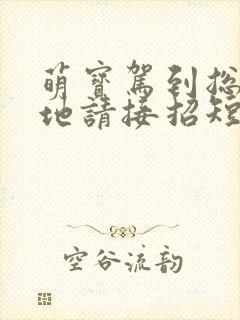 萌寶駕到總
地請接招短
空谷流韵